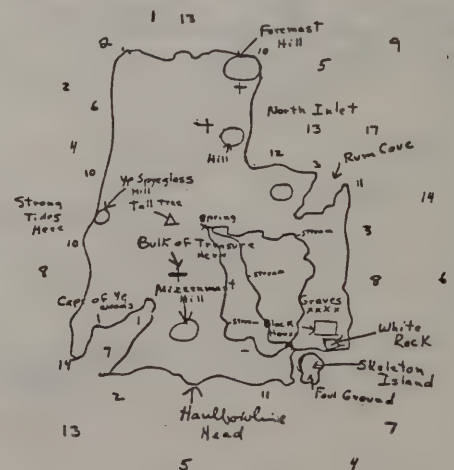 1 13
Foremast
Hill
9
2
10
5
2
6
North Inlet
13 17
Hill
12
4
3
Rum Cove
10
11
Ye Spyeglass
Hill
Tall Tree
14
Strong
Tides
Here
Spring
stream
3
10
Bulk of Treasure
Here
stream
8
8
6
Mizzenmast
Hill
Graves
xxxx
Cape of Ye
Woods
1
stream
Block
House
White
Rock
14
7
Skeleton
Island
2
11
Foul Ground
Haulbowline
Head
13
7
5
4